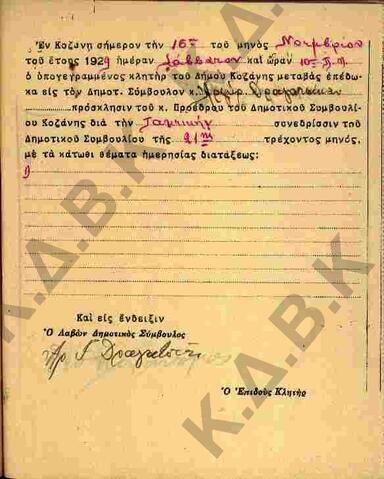 Ἐν Κοζάνῃ σήμερον τὴν 16ην τοῦ μηνὸς Νοεμβρίου
τοῦ ἔτους 1929 ἡμέραν Σάββατον καὶ ὥραν 10ην π.μ.
ὁ ὑπογεγραμμένος κλητὴρ τοῦ Δήμου Κοζάνης μεταβὰς ἐπέδω-
κα εἰς τὸν Δημοτ. Σύμβουλον κ.
πρόσκλησιν τοῦ κ. Προέδρου τοῦ Δημοτικοῦ Συμβουλί-
ου Κοζάνης διὰ τὴν Τακτικὴν συνεδρίασιν τοῦ
Δημοτικοῦ Συμβουλίου τῆς 21ης τρέχοντος μηνός,
μὲ τὰ κάτωθι θέματα ἡμερησίας διατάξεως:
Καὶ εἰς ἔνδειξιν
Ὁ Λαβὼν Δημοτικὸς Σύμβουλος
Ὁ Ἐπιδοὺς Κλητὴρ
Κ.Δ.Β.Κ
Κ.Δ.Β.Κ